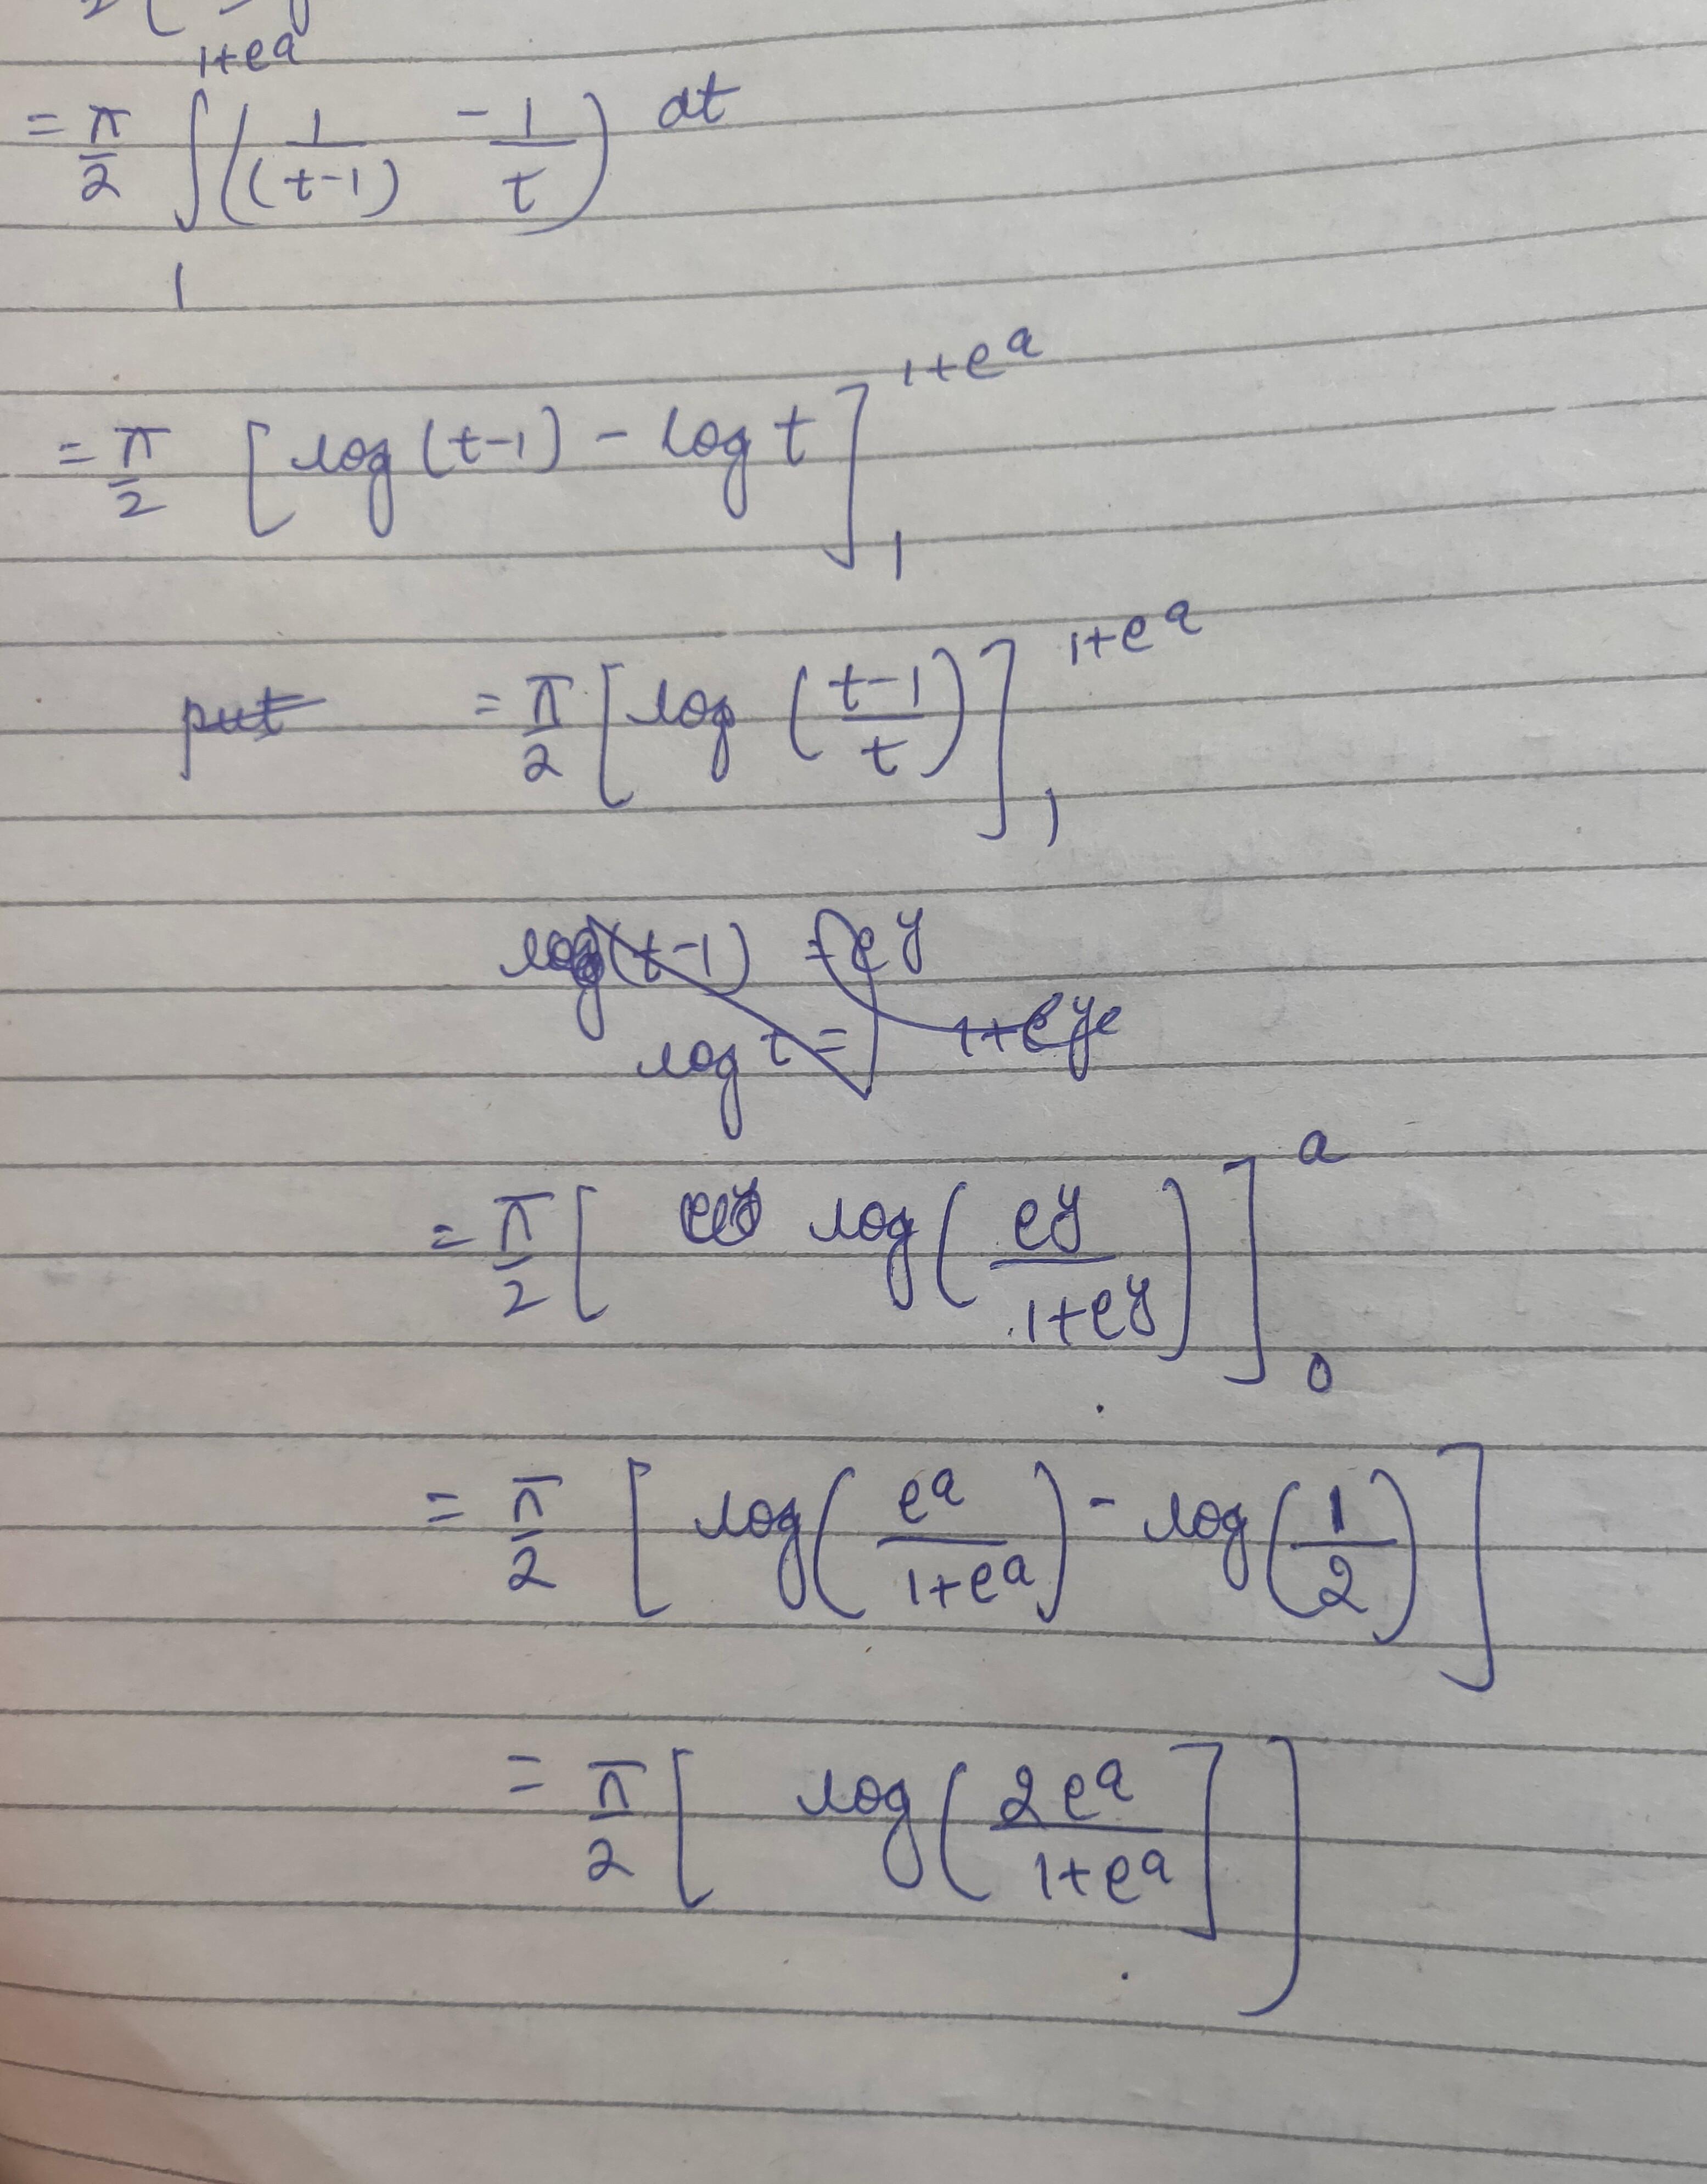 1+e^a
= π/2 ∫ (1/(t-1) - 1/t) dt
1
= π/2 [log(t-1) - log t]_1^{1+e^a}
put = π/2 [log((t-1)/t)]_1^{1+e^a}
log(t-1) = e^y
log t = 1+e^y
= π/2 [log(e^y/(1+e^y))]_0^a
= π/2 [log(e^a/(1+e^a)) - log(1/2)]
= π/2 [log(2e^a/(1+e^a]]